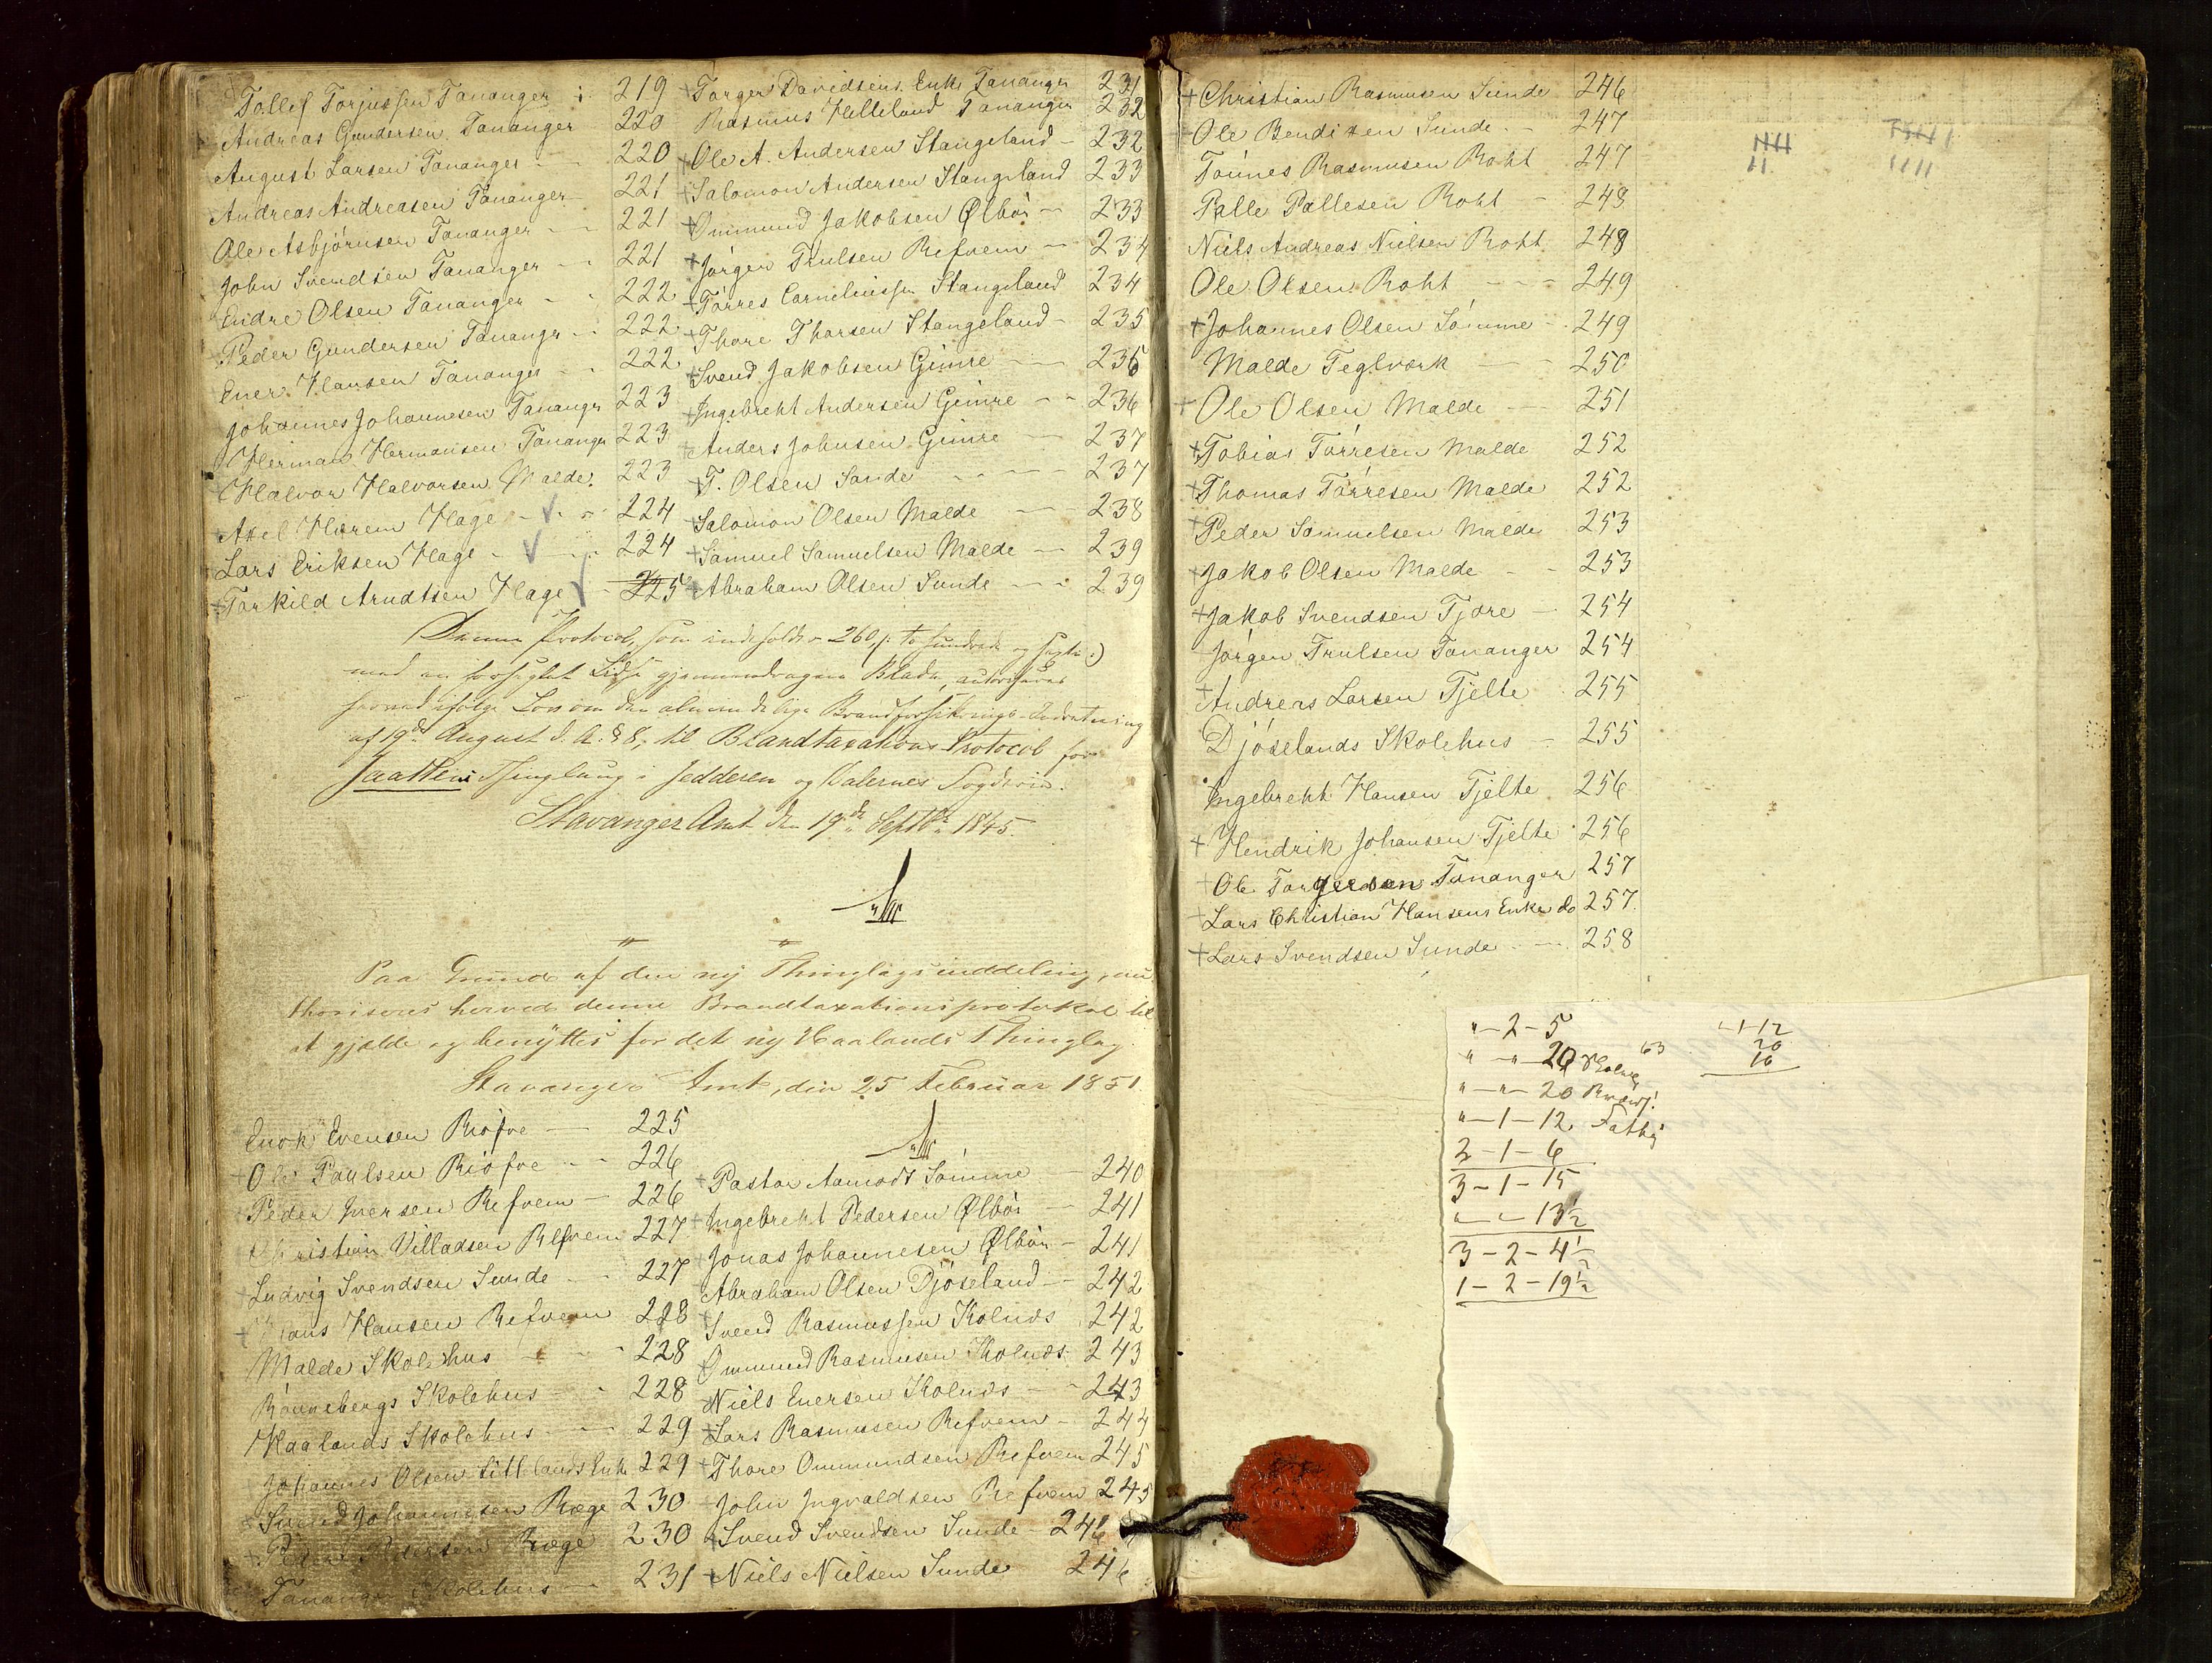 Tollef Torjussen Tananger 219
Andreas Gundersen Tananger 220
August Larsen Tananger 220
Andreas Andreasen Tananger 221
Ole Asbjörnsen Tananger 221
John Svendsen Tananger 221
Endre Olsen Tananger 222
Peder Gundersen Tananger 222
Ener Hansen Tananger 222
Johannes Johannesen Tananger 223
Herman Hermansen Tananger 223
Halvor Halvorsen Malde 223
Axel Hærem Hage 224
Lars Eriksen Hage 224
+ Torkild Arndtsen Hage 225
+ Torger Davidsens Enke Tananger 231
Rasmus Helleland Tananger 232
+ Ole A. Andersen Stangeland 232
+ Salomon Andersen Stangeland 233
Ommund Jakobsen Ølbör 233
+ Jörgen Trulsen Refvem 234
+ Törres Corneliussen Stangeland 234
+ Thore Thorsen Stangeland 235
+ Svend Jakobsen Gimre 236
Ingebreht Andersen Gimre 236
+ Anders Johnsen Gimre 237
+ T. Olsen Sande 237
+ Salomon Olsen Malde 238
+ Samuel Samuelsen Malde 239
+ Abraham Olsen Sunde 239
Denne Protocol, som indeholder 260 /: to hundrede og sexti :)
med en forseglet Lidse gjennemdragne Blade, autoriseres
herved ifölge Lov om den almindelige Brandforsikrings-Indretning
af 19de August d. A. § 8, til Brandtaxations-Protocol for
Jaattens Thinglaug i Jedderen og Dalernes Fogderie.
Stavanger Amt den 19de Septbr 1845.
Paa Grund af den ny Thinglagsinddeling, au-
thoriseres herved denne Brandtaxationsprotokol til
at gjælde og benyttes for det ny Haalands Thinglag.
Stavanger Amt, den 25 Februar 1851
Enok Evensen Riöfve 225
+ Ole Paulsen Riöfve 226
+ Peder Iversen Refvem 226
Christian Villadsen Refvem 227
+ Ludvig Svendsen Sunde 227
+ Hans Hansen Refvem 228
Malde Skolehus 228
Rönnebergs Skolehus 228
Haalands Skolehus 229
Johannes Olsen Litlelands Enke 229
+ Svend Johannesen Ræge 230
+ Peder Pedersen Ræge 230
Tananger Skolehus 231
+ Pastor Aamodt Sömme 240
+ Ingebreht Pedersen Ølbör 241
Jonas Johannesen Ølbör 241
Abraham Olsen Djöseland 242
+ Svend Rasmussen Kolnæs 242
Ommund Rasmusen Kolnæs 243
Niels Enersen Kolnæs 243
+ Lars Rasmusen Refvem 244
+ Thore Ommundsen Refvem 245
John Ingvaldsen Refvem 245
+ Svend Svendsen Sunde 246
+ Niels Nielsen Sunde 246
+ Christian Rasmusen Sunde 246
+ Ole Bendixen Sunde 247
Tönnes Rasmusen Roht 247
Palle Pallesen Roht 248
Niels Andreas Nielsen Roht 248
Ole Olsen Roht 249
+ Johannes Olsen Sömme 249
Malde Teglværk 250
+ Ole Olsen Malde 251
+ Tobias Törresen Malde 252
+ Thomas Törresen Malde 252
+ Peder Samuelsen Malde 253
+ Jakob Olsen Malde 253
+ Jakob Svendsen Tjore 254
Jörgen Trulsen Tananger 254
+ Andreas Larsen Tjelte 255
Djöselands Skolehus 255
Ingebreht Hansen Tjelte 256
+ Hendrik Johansen Tjelte 256
+ Ole Torgersen Tananger 257
+ Lars Christian Hansens Enke do 257
+ Lars Svendsen Sunde 258
" - 2 - 5
" - " - 20
63
" - " - 20
" - 1 - 12
2 - 1 - 6
3 - 1 - 15
" - " - 13½
3 - 2 - 4½
1 - 2 - 19½
1-12
20
16